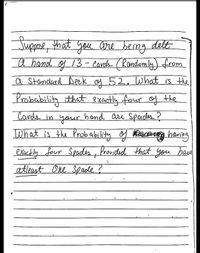 Suppose, that you are being delt
a hand of 13-cards (Randomly) from
a standard Deck of 52. What is the
Probability that exactly four of the
Cards in your hand are Spades?
What is the Probability of having
exactly four Spades, Provided that you have
atleast One Spade?